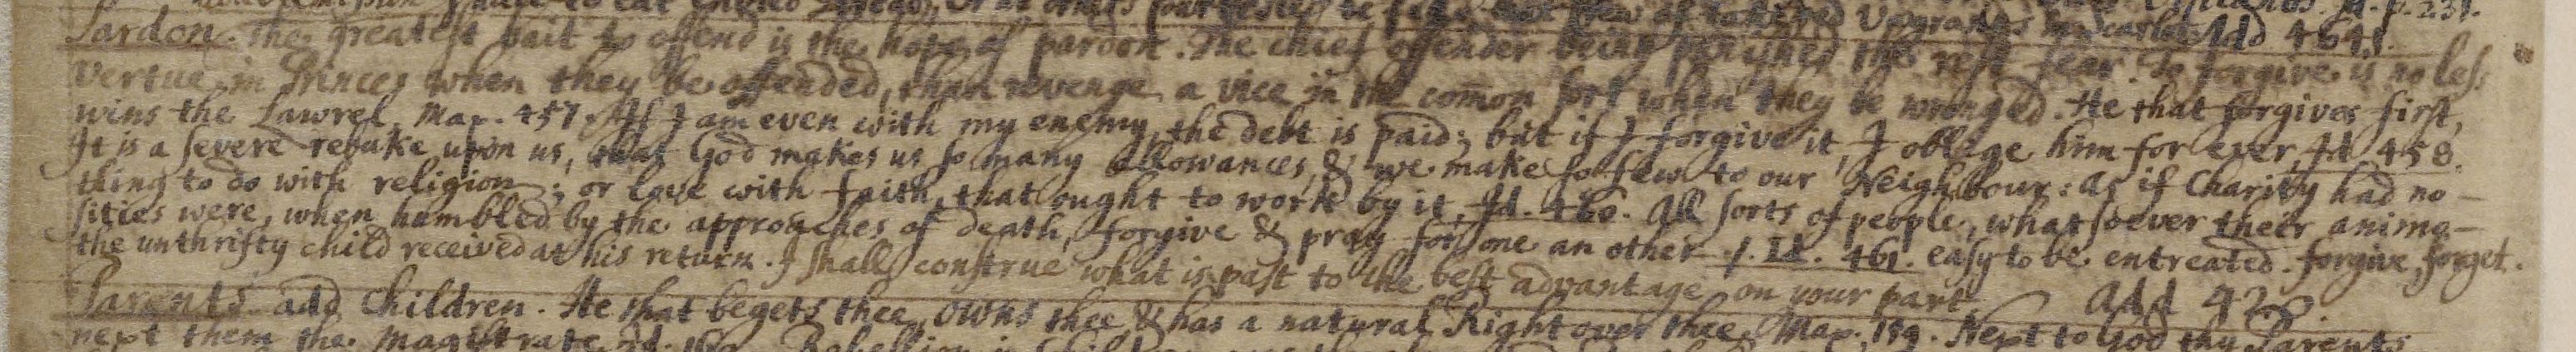 Pardon. The greatest bait to offend is the hope of pardon. The chief offender being punished the rest fear. To forgive is no less
vertue in Princes when they be offended, than revenge a vice in the com̄on sort when they be wronged. He that forgives first,
wins the Lawrel. Max. 457. If I am even with my enemy, the debt is paid; but if I forgive it, I oblige him for ever. Id 458.
It is a severe rebuke upon us, that God makes us so many allowances, & we make so few to our Neighbour: as if Charity had no-
thing to do with religion; or love with faith, that ought to work by it. Id. 460. All sorts of people, whatsoever their animo-
sities were, when humbled by the approaches of death, forgive & pray for one an other. Id. 461. easy to be entreated. forgive, forget.
the unthrifty child received at his return. I shall construe what is past to the best advantage on your part. add 428.
Parents. add Children. He that begets thee, owns thee & has a natural Right over thee. Max. 159. Next to God thy Parents
next them the Magistrate. Id. 160. Rebellion in